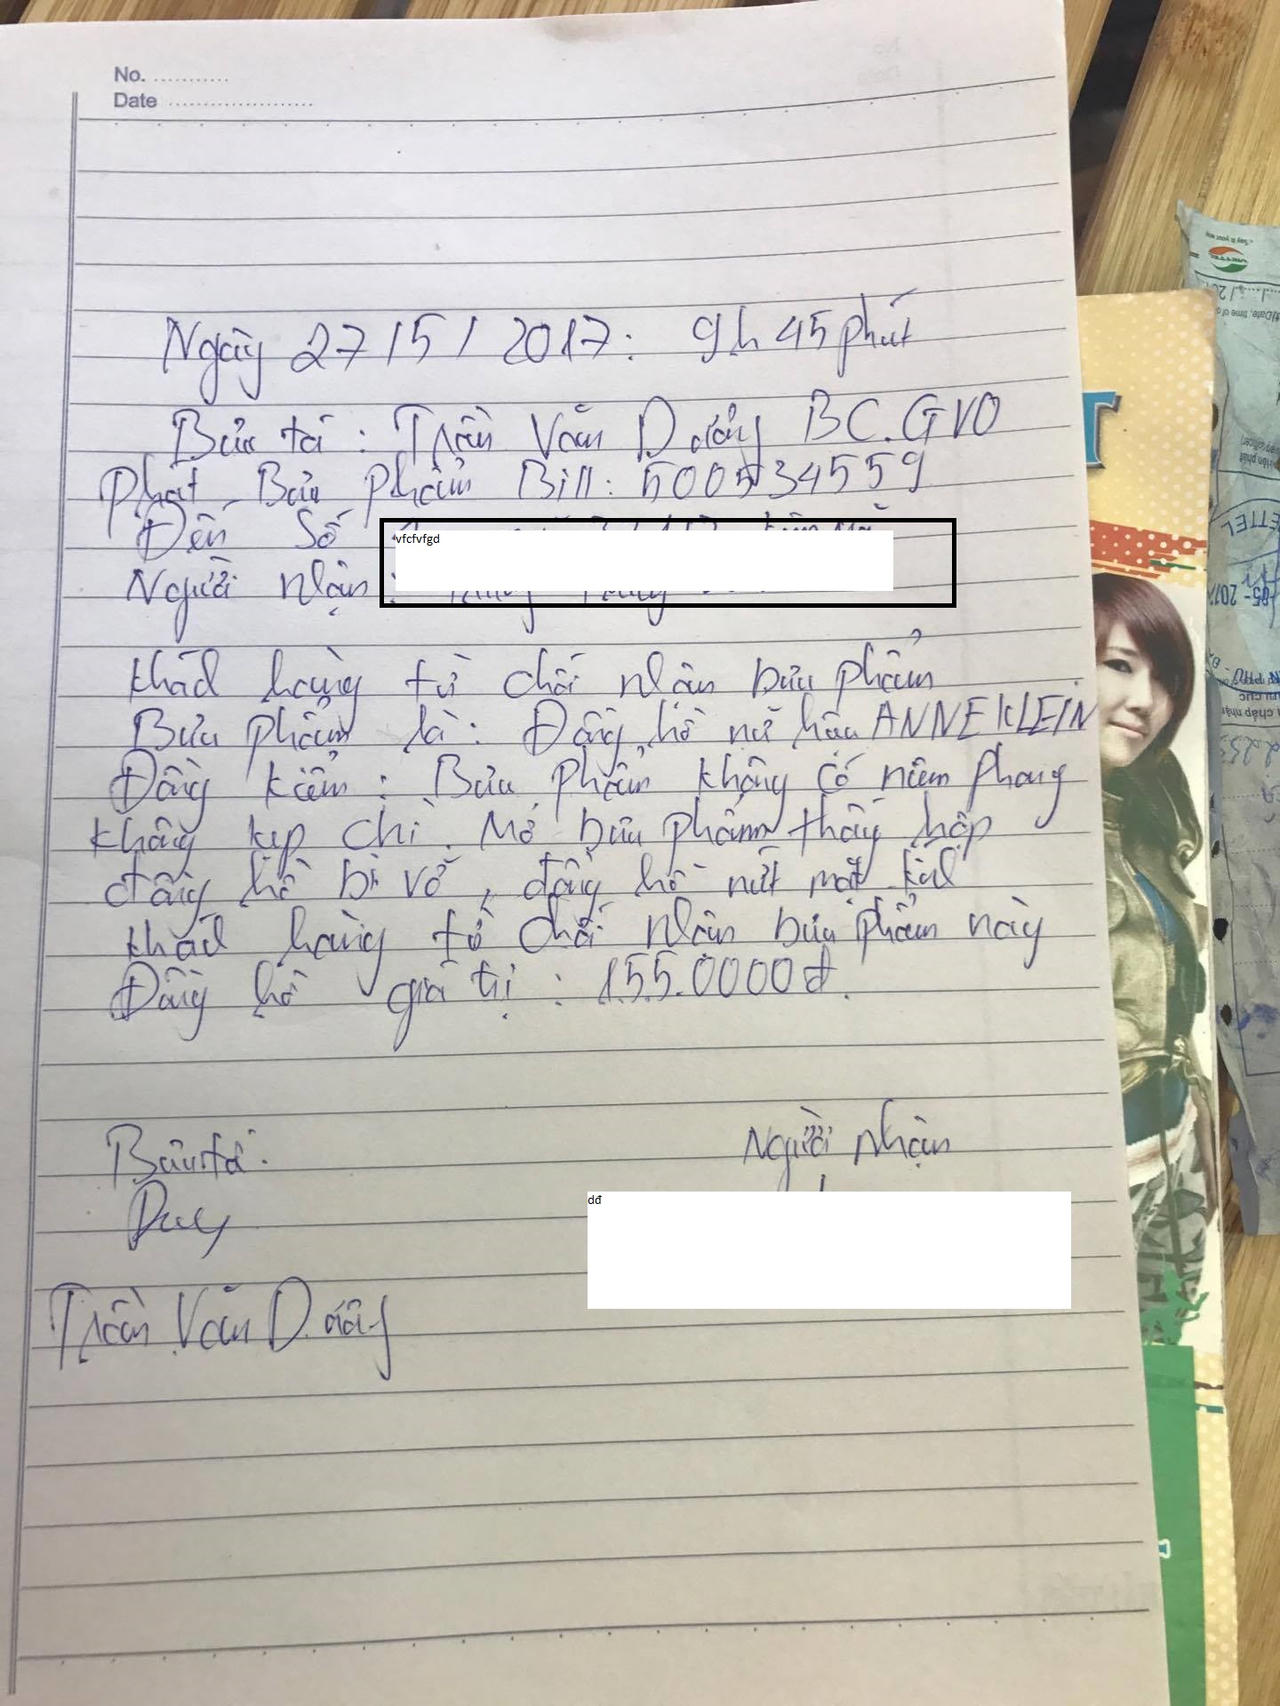 No. ...........
Date ......................
Ngày 27/5/2017: 9h 45 phút
Bưu tá : Trần Văn Dưỡng BC.GVO
Phát Bưu phẩm Bill: 500534559
Đến Số
vfcfvfgd
Người nhận :
khách hàng từ chối nhận bưu phẩm
Bưu phẩm là : Đồng hồ nữ hiệu ANNE KLEIN
Đồng kiểm : Bưu phẩm không có niêm phong
không kẹp chì. Mở bưu phẩm thấy hộp
đồng hồ bị vỡ, đồng hồ nứt mặt kính
khách hàng từ chối nhận bưu phẩm này
Đồng hồ giá trị : 155.0000đ.
Bưu tá. Người nhận
Duy
dđ
Trần Văn Dưỡng